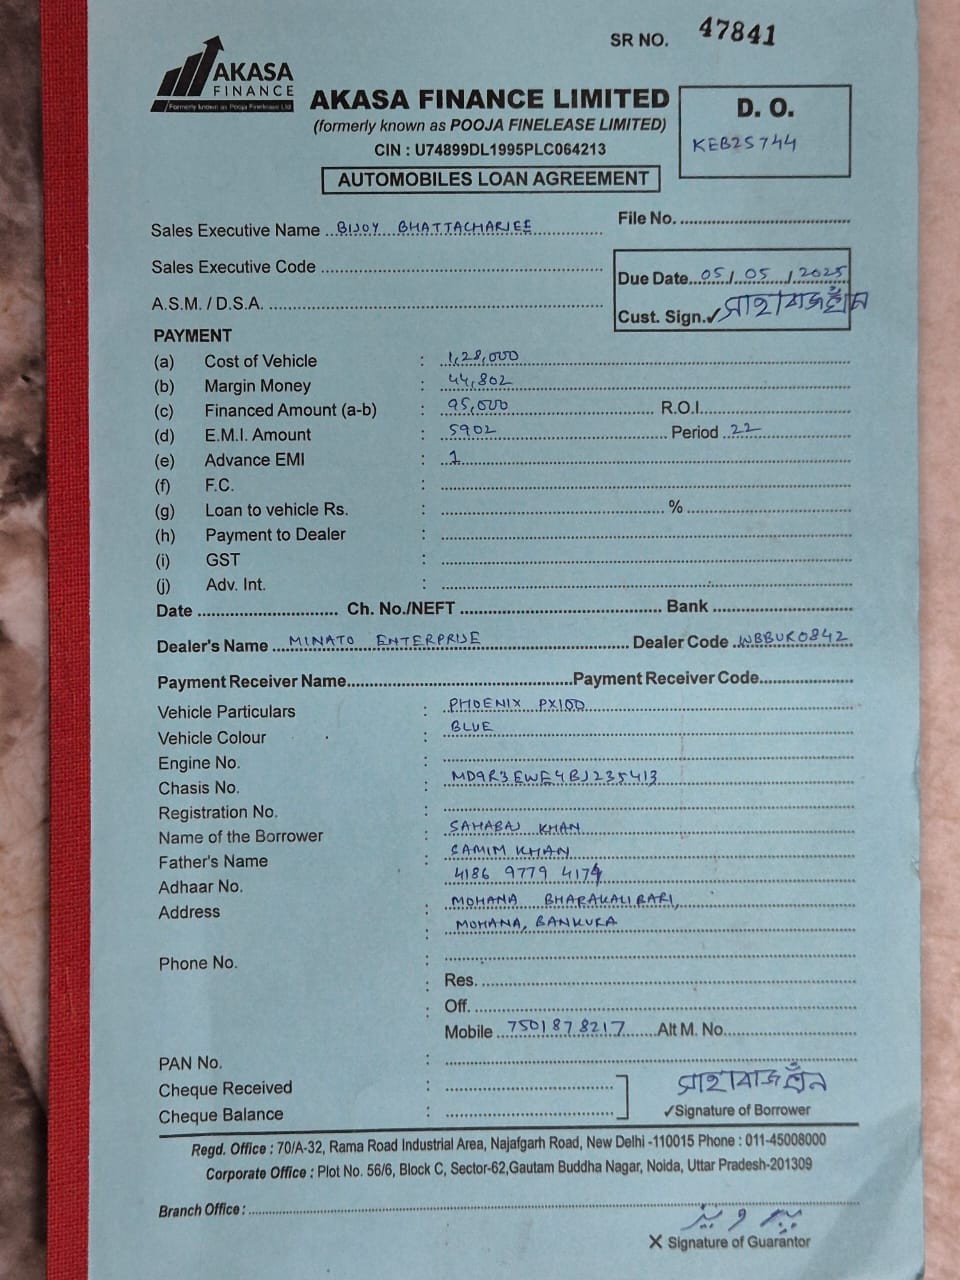 SR NO. 47841
AKASA
FINANCE
Formerly known as Pooja Finelease Ltd
AKASA FINANCE LIMITED
(formerly known as POOJA FINELEASE LIMITED)
CIN : U74899DL1995PLC064213
AUTOMOBILES LOAN AGREEMENT
D. O.
KEB25744
Sales Executive Name BIJOY BHATTACHARJEE
File No.
Sales Executive Code
Due Date 05/05/2025
A.S.M. / D.S.A.
Cust. Sign. ✓ সাহাবাজ খাঁন
PAYMENT
(a) Cost of Vehicle : 1,28,000
(b) Margin Money : 44,802
(c) Financed Amount (a-b) : 95,000 R.O.I.
(d) E.M.I. Amount : 5902 Period 22
(e) Advance EMI : 1
(f) F.C. :
(g) Loan to vehicle Rs. : %
(h) Payment to Dealer :
(i) GST :
(j) Adv. Int. :
Date Ch. No./NEFT Bank
Dealer's Name MINATO ENTERPRISE Dealer Code WBBUR0842
Payment Receiver Name Payment Receiver Code
Vehicle Particulars : PHOENIX PX100
Vehicle Colour : BLUE
Engine No. :
Chasis No. : MD9R3EWE4BJ235413
Registration No. :
Name of the Borrower : SAHABAJ KHAN
Father's Name : SAMIM KHAN
Adhaar No. 4186 9779 4174
Address : MOHANA BHARAKALIBARI,
: MOHANA, BANKURA
Phone No. :
: Res.
: Off.
Mobile 7501878217 Alt M. No.
PAN No. :
Cheque Received :
সাহাবাজ খাঁন
Cheque Balance :
✓Signature of Borrower
Regd. Office : 70/A-32, Rama Road Industrial Area, Najafgarh Road, New Delhi -110015 Phone : 011-45008000
Corporate Office : Plot No. 56/6, Block C, Sector-62,Gautam Buddha Nagar, Noida, Uttar Pradesh-201309
Branch Office :
X Signature of Guarantor